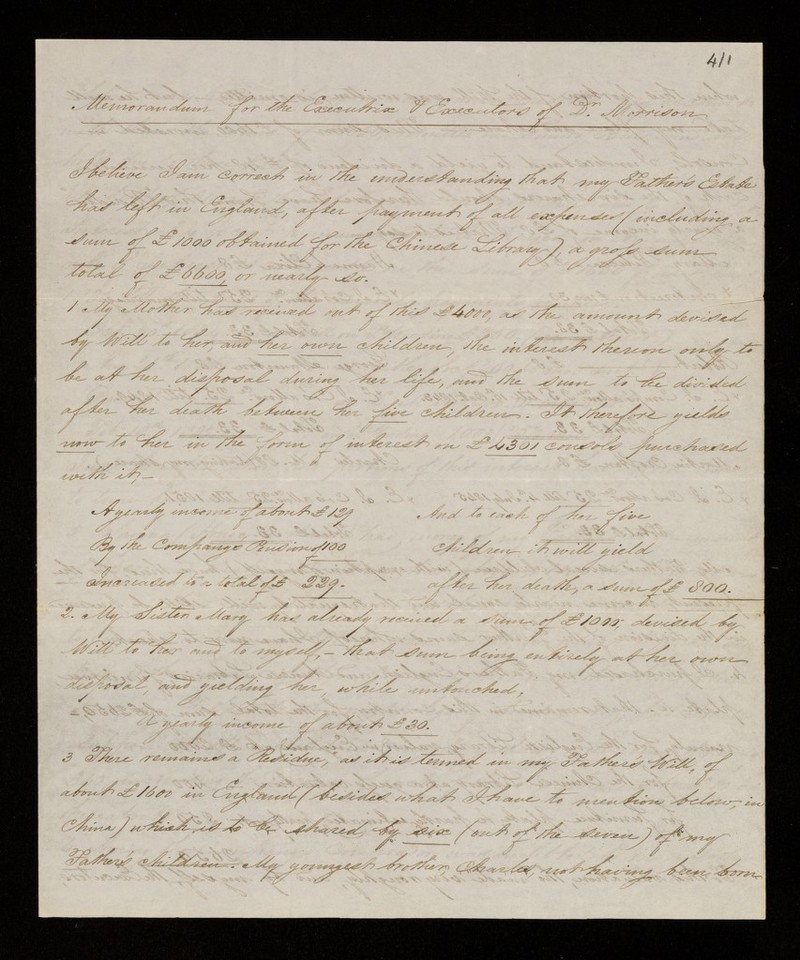 4/1
Memorandum for the Executrix & Executors of Dr. Morrison
I believe I am correct in the understanding that my Father's Estate
has left in England, after payment of all expenses (including a
sum of £1000 obtained for the Chinese Library), a gross sum
total of £6600, or nearly so.
1. My Mother has received out of this £4000, as the amount devised
by Will to her, and her own children, the interest thereon only to
be at her disposal during her life, and the sum to be divided
after her death between her five children. It therefore yields
now to her in the form of interest on £4301 consols purchased
with it,—
A yearly income of about £129
By the Company's Pension of 100
Increased to a total of £ 229.
And to each of her five
children it will yield
after her death, a sum of £ 800.
2. My Sister Mary has already received a sum of £1000, devised by
Will to her and to myself,— that sum being entirely at her own
disposal, and yielding her, while untouched,
A yearly income of about £30.
3 There remains a Residue, as it is termed in my Father's Will, of
about £1600 in England (besides what I have to mention below, in
China) which is to be shared by six (out of the seven) of my
Father's children. My youngest brother, Charles, not having been born